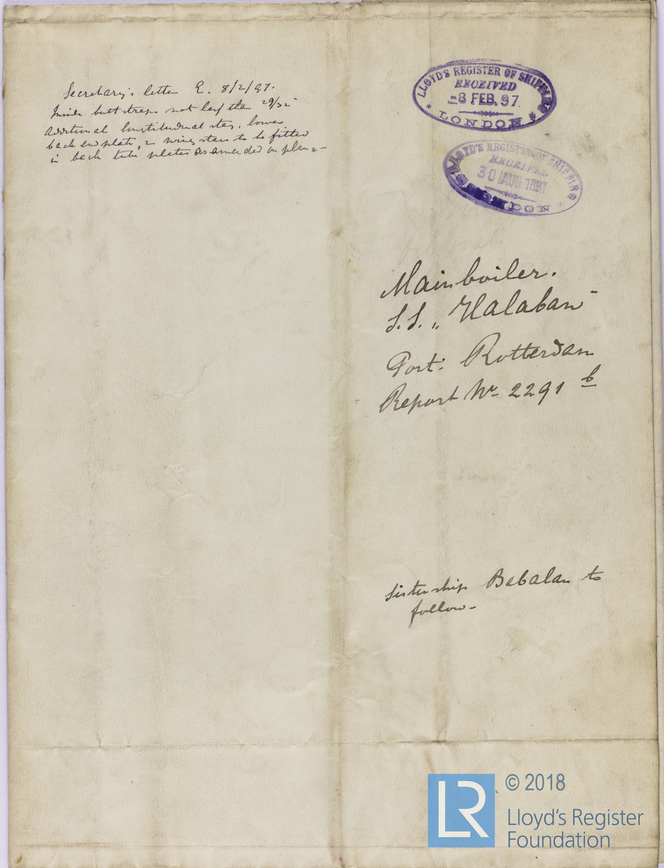 Secretary's letter E. 8/2/97.
Inside butt straps not less than 29/32"
Additional longitudinal stay, lower
back end plate, & wing stays to be fitted
in back tube plates as amended on plan -
LLOYD'S REGISTER OF SHIPPING
RECEIVED
-8 FEB. 97.
LONDON
LLOYD'S REGISTER OF SHIPPING
RECEIVED
30 AUG 1897
LONDON
Main boiler.
S.S. „Halaban"
Port: Rotterdam
Report No 2291 b
Sistership Babalan to
follow -
LR
© 2018
Lloyd's Register
Foundation